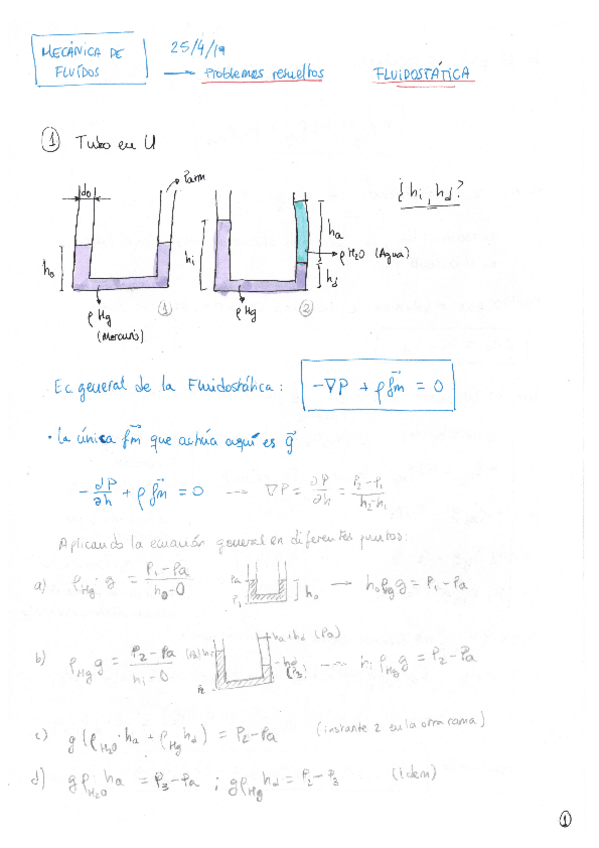 MECÁNICA DE
FLUÍDOS
25/4/19
→ Problemas resueltos FLUIDOSTÁTICA
① Tubo en U
d₀
Patm
h₀
ρ Hg
(Mercurio)
①
hi
ρ Hg
②
ha
ρ H₂O (Agua)
hd
¿ hi, hd?
Ec general de la Fluidostática: -∇P + ρ f⃗m = 0
· la única f⃗m que actúa aquí es g⃗
- ∂P/∂h + ρ f⃗m = 0 ---> ∇P = ∂P/∂h = P₂-P₁/h₂-h₁
Aplicando la ecuación general en diferentes puntos:
a) ρHg · g = P₁-Pa/h₀-0
Pa
P₁
h₀
→ h₀ρHg g = P₁-Pa
b) ρHg g = P₂-Pa/hi-0
ha+hd (Pa)
hd
(P₃)
P₂
---> hi ρHg g = P₂-Pa
c) g(ρH₂O·ha + ρHg hd) = P₂-Pa (instante 2 en la otra rama)
d) gρH₂O ha = P₃-Pa ; gρHg hd = P₂-P₃ (idem)
①